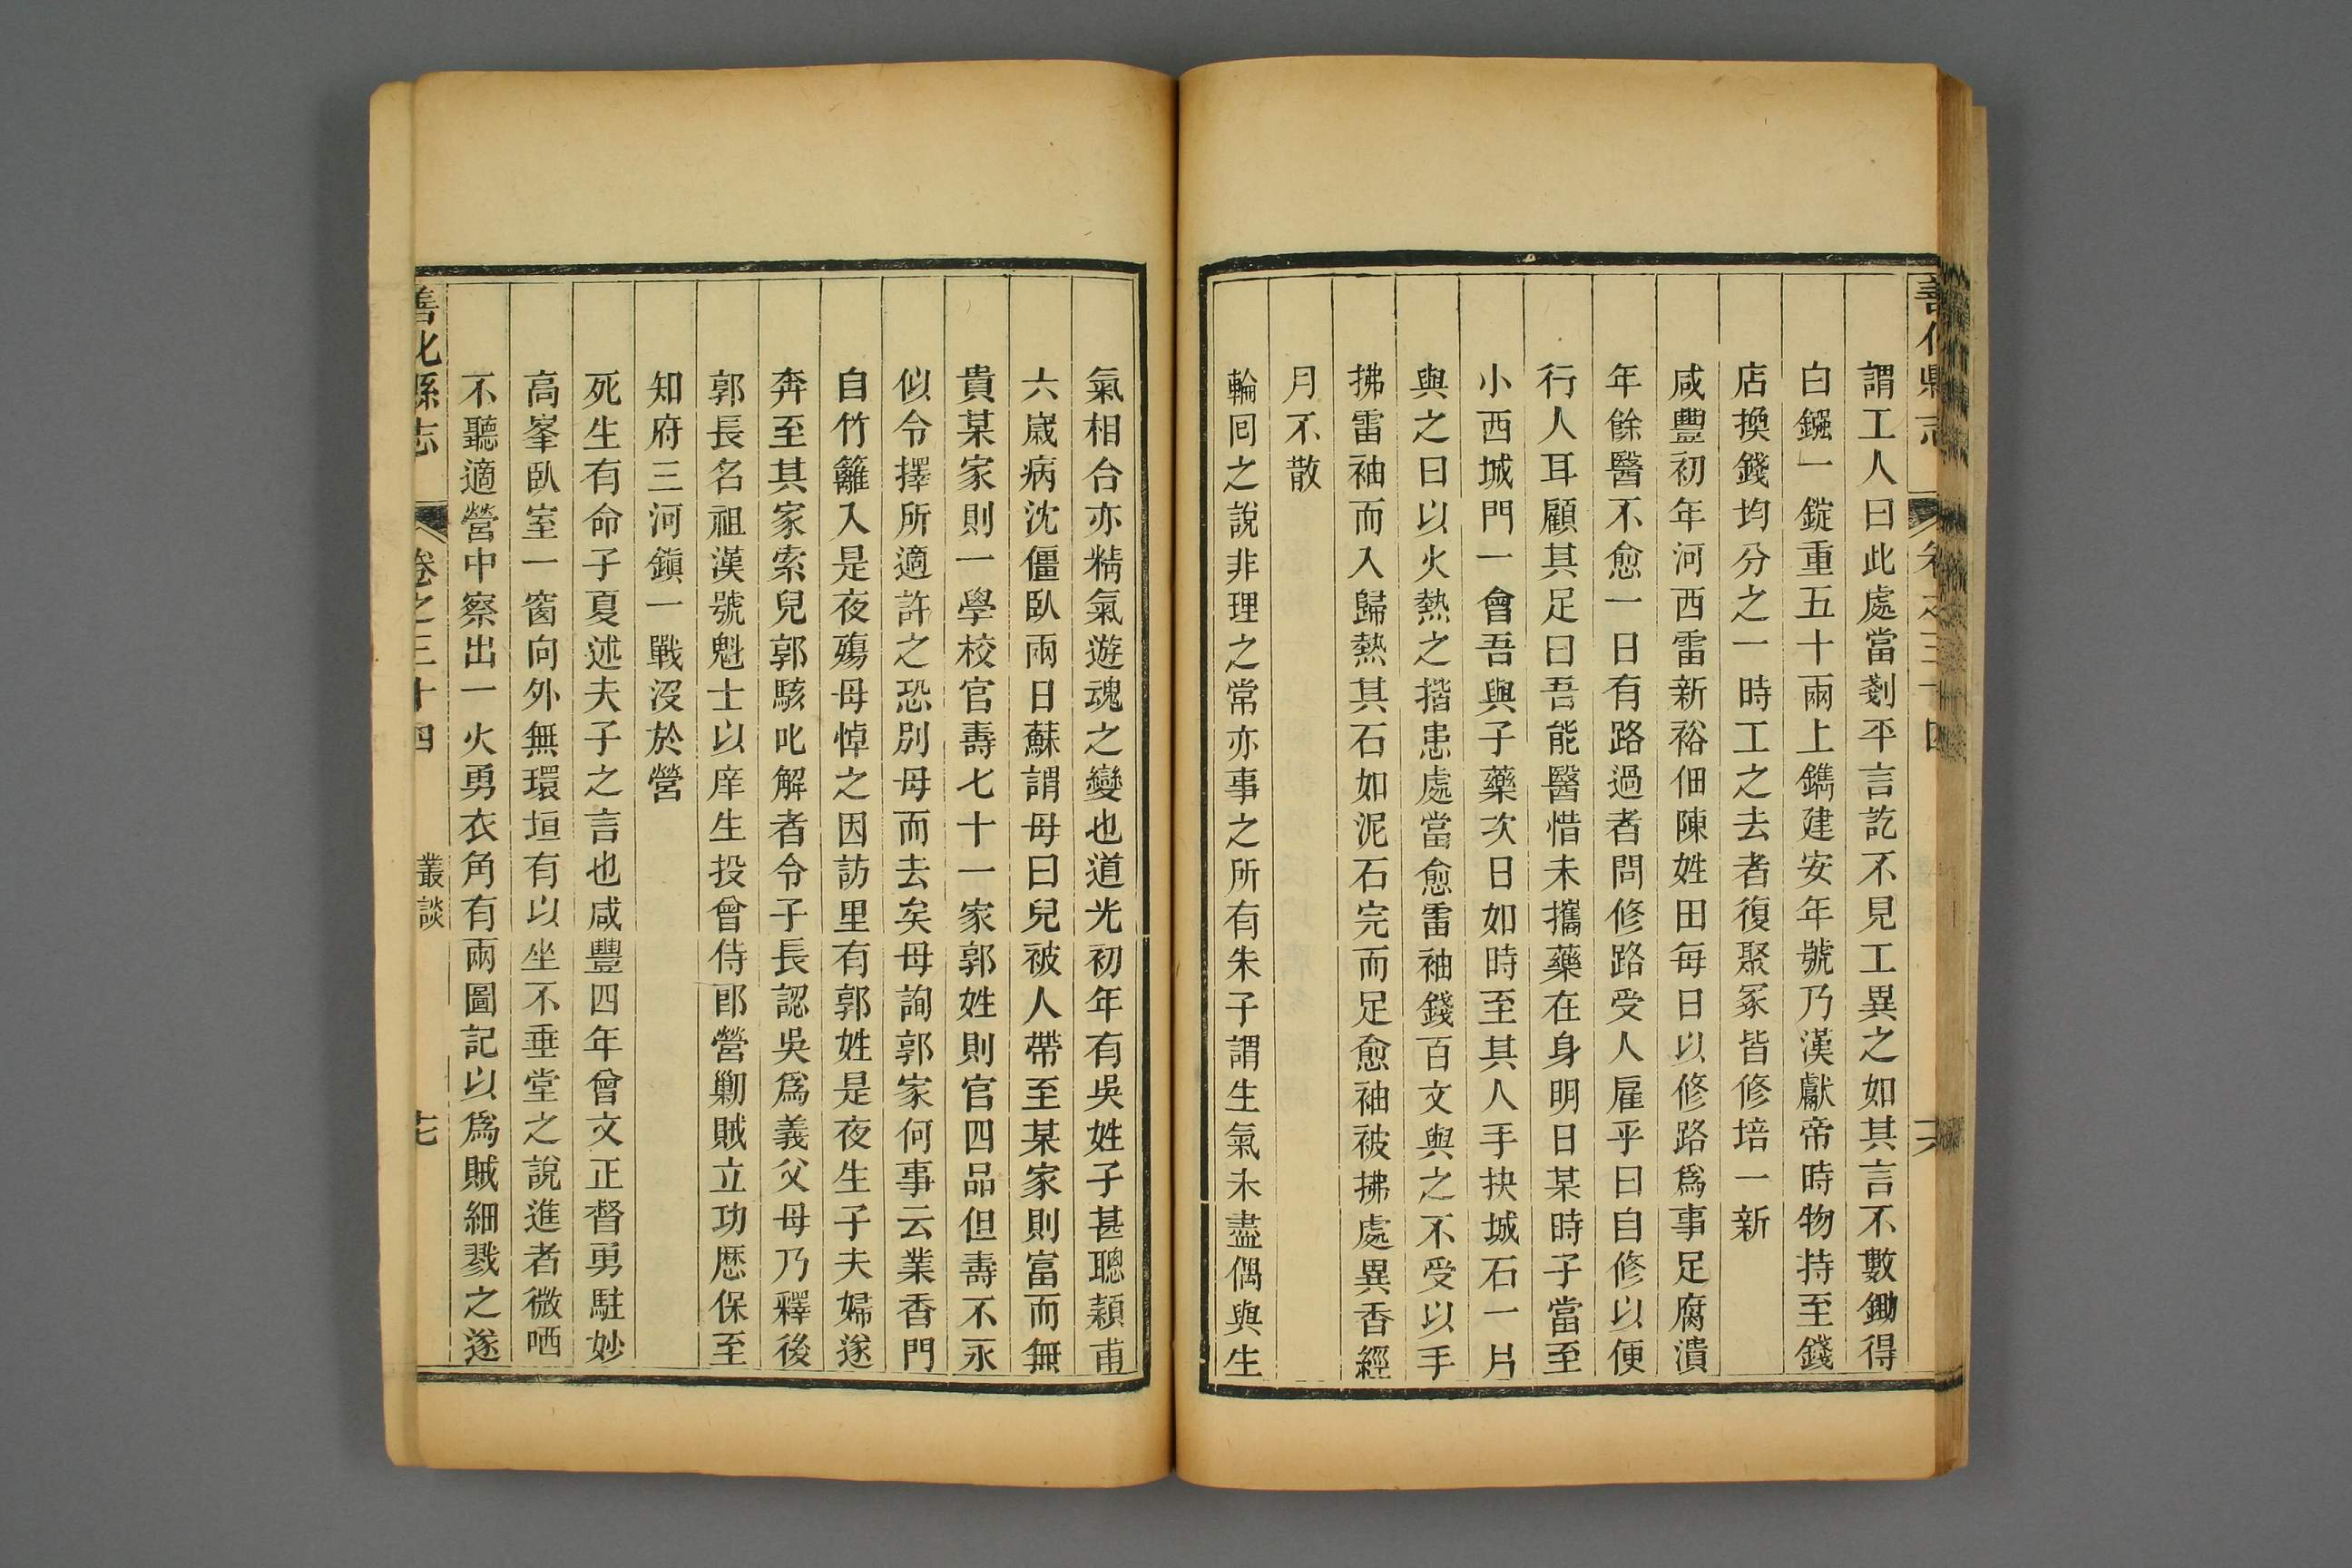 善化縣志
卷之三十四
謂工人曰此處當剗平言訖不見工異之如其言不數鋤得
白鏹一錠重五十兩上鐫建安年號乃漢獻帝時物持至錢
店換錢均分之一時工之去者復聚冢皆修培一新
咸豐初年河西雷新裕佃陳姓田每日以修路爲事足腐潰
年餘醫不愈一日有路過者問修路受人雇乎曰自修以便
行人耳顧其足曰吾能醫惜未攜藥在身明日某時子當至
小西城門一會吾與子藥次日如時至其人手抉城石一片
與之曰以火熱之揩患處當愈雷袖錢百文與之不受以手
拂雷袖而入歸熱其石如泥石完而足愈袖被拂處異香經
月不散
輪回之說非理之常亦事之所有朱子謂生氣未盡偶與生
氣相合亦精氣遊魂之變也道光初年有吳姓子甚聰穎甫
六歲病沈僵臥兩日蘇謂母曰兒被人帶至某家則富而無
貴某家則一學校官壽七十一家郭姓則官四品但壽不永
似令擇所適許之恐別母而去矣母詢郭家何事云業香門
自竹籬入是夜殤母悼之因訪里有郭姓是夜生子夫婦遂
奔至其家索兒郭駭叱解者令子長認吳爲義父母乃釋後
郭長名祖漢號魁士以庠生投曾侍郎營勦賊立功歷保至
知府三河鎮一戰沒於營
死生有命子夏述夫子之言也咸豐四年曾文正督勇駐妙
高峯臥室一窗向外無環垣有以坐不垂堂之說進者微哂
不聽適營中察出一火勇衣角有兩圖記以爲賊細戮之遂
善化縣志
卷之三十四
叢談